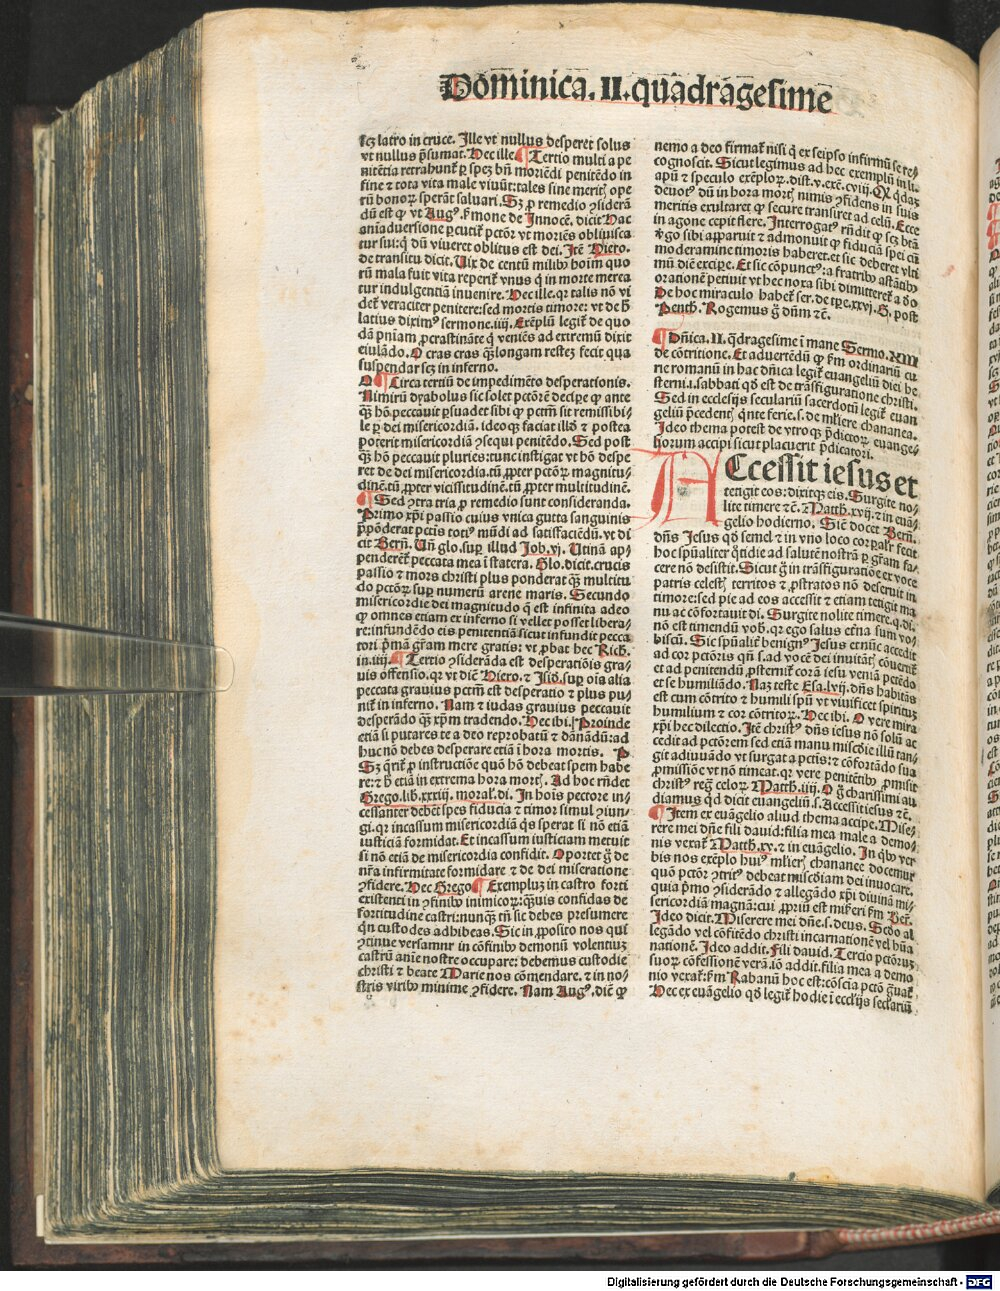 Dominica. II. quadragesime
scꝫ latro in cruce. Ille vt nullus desperet solus
vt nullus p̄sumat. Hec ille. ¶ Tertio multi a pe
nitētia retrahunt̄ ꝑ spez bn̄ moriēdi penitēdo in
fine ⁊ tota vita male viuūt: tales sine merit̄ ope
rū bonoꝝ sperāt saluari. Sꝫ ꝓ remedio ꝯsiderā
dū est ꝙ vt Augꝰ. ẜmone de Innocē. dicit Hac
aniaduersione ꝑcutit̄ pctōr vt moriēs obliuisca
tur sui: q̄ dū viueret oblitus est dei. Itē Hiero.
de transitu dicit. Uix de centū milibꝰ hoim quo
rū mala fuit vita reperit̄ vnus q̄ in morte merea
tur indulgentiā inuenire. Hec ille. qr talis nō vi
det̄ veraciter penitere: sed mortis timore: vt de h̄
latius diximꝰ sermone. iiij. Exēplū legit̄ de quo
dā pn̄iam ꝓcrastināte q̄ veniēs ad extremū dixit
eiulādo. O cras cras q̄ꝫ longam restez fecit qua
suspendar scꝫ in inferno.
O ¶ Circa tertiū de impedimēto desperationis.
Nimirū dyabolus sic solet pctōrē decipe ꝙ ante
q̄ꝫ hō peccauit ꝑsuadet sibi ꝙ pctm̄ sit remissibi
le ꝑ dei misericordiā. ideoqꝫ faciat illḋ ⁊ postea
poterit misericordiā ꝯsequi penitēdo. Sed post
q̄ꝫ hō peccauit pluries: tunc instigat vt hō despe
ret de dei misericordia. tū ꝓpter pctōꝝ magnitu
dinē. tū ꝓpter vicissitudinē. tū ꝓpter multitudinē.
¶ Sed ꝯtra tria ꝓ remedio sunt consideranda.
Primo xp̄i passio cuius vnica gutta sanguinis
p̄pōderat pctis totiꝰ mūdi ad satisfaciēdū. vt di
cit Berñ. Uñ glo. suꝑ illud Job. vj. Utinā ap⸗
penderēt̄ peccata mea ī statera. Glo. dicit. crucis
passio ⁊ mors christi plus ponderat q̄ꝫ multitu
do pctōꝝ suꝑ numerū arene maris. Secundo
misericordie dei magnitudo q̄ est infinita adeo
ꝙ omnes etiam ex inferno si vellet posset libera⸗
re: infundēdo eis penitentiā sicut infundit pecca
tori p̄mā grām mere gratis: vt ꝓbat hec Rich.
in. iiij. ¶ Tertio ꝯsiderāda est desperatiōis gra⸗
uis offensio. qr vt dicit Hiero. ⁊ Isiḋ. suꝑ oia alia
peccata grauius pctm̄ est desperatio ⁊ plus pu⸗
nit̄ in inferno. Nam ⁊ iudas grauius peccauit
desperādo q̄ꝫ xp̄m tradendo. Hec ibi. Proinde
etiā si putares te a deo reprobatū ⁊ dānādū: ad
huc nō debes desperare etiā ī hora mortis. P
Sꝫ q̄rit̄ ꝓ instructiōe quō hō debeat spem habe
re: ⁊ h̄ etiā in extrema hora mort̄. Ad hoc rñdet
Grego. lib. xxxiij. moral̄. di. In hois pectore in⸗
cessanter debēt spes fiducia ⁊ timor simul ꝯiun⸗
gi. qr incassum misericordiā q̄s sperat si nō etiā
iusticiā formidat. Et incassum iusticiam metuit
si nō etiā de misericordia confidit. Oportet g̊ de
nr̄a infirmitate formidare ⁊ de dei miseratione
ꝯfidere. Hec Grego. ¶ Exempluꝫ in castro forti
existenti in ꝯfinibꝰ inimicoꝝ: q̄uis confidas de
fortitudine castri: nunq̄ꝫ tn̄ sic debes presumere
qn̄ custodes adhibeas. Sic in ꝓposito nos qui
ꝯtinue versamur in cōfinibꝰ demonū volentiuꝫ
castrū anīe nostre occupare: debemus custodie
christi ⁊ beate Marie nos cōmendare. ⁊ in no⸗
stris viribꝰ minime ꝯfidere. Nam Augꝰ. diē ꝙ
nemo a deo firmat̄ nisi q̄ ex seipso infirmū se re⸗
cognoscit. Sicut legimus ad hec exemplū in li.
apū ⁊ speculo exēploꝝ. dist. v. exē. cviij. Qr q̇daꝫ
deuotꝰ dū in hora mort̄ nimis ꝯfidens in suis
meritis exultaret ꝙ secure transiret ad celū. Ecce
in agone cepit flere. Interrogatꝰ rñdit ꝙ scꝫ btā
ꝟgo sibi apparuit ⁊ admonuit ꝙ fiduciā spei cū
moderamine timoris haberet. et sic deberet vlti
mū diē excipe. Et sic cōpunctꝰ: a fratribꝰ astātibꝰ
orationē petiuit vt hec noxa sibi dimitteret̄ a deo
De hoc miraculo habet̄ ser. de tpe. xxvj. G. post
Penth. Rogemus g̊ dn̄m ⁊c̄.
¶ Dñica. II. q̄dragesime ī mane Sermo. XIII
de cōtritione. Et aduertēdū ꝙ ẜm ordinariū cu
rie romanū in hac dn̄ica legit̄ euangeliū diei he
sterni. s. sabbati qḋ est de trāsfiguratione christi.
Sed in ecclesijs seculariū sacerdotū legit̄ euan
geliū p̄cedent̄ q̄nte ferie. s. de ml̄iere chananea.
Ideo thema potest de vtroqꝫ p̄dictoꝝ euange⸗
liorum accipi sicut placuerit p̄dicatori.
ACcessit iesus et
tetigit eos: dixitqꝫ eis. Surgite no⸗
lite timere ⁊c̄. Matth. xvij. ⁊ in euā⸗
gelio hodierno. Sicut docet Berñ.
dñs Jesus qḋ semel ⁊ in vno loco corꝑalr̄ fecit
hoc spūaliter q̇tidie ad salutē nostrā ꝑ grām fa⸗
cere nō desistit. Sicut g̊ in trāsfiguratiōe ex voce
patris celest̄ territos ⁊ ꝓstratos nō deseruit in
timore: sed pie ad eos accessit ⁊ etiam tetigit ma
nu ac cōfortauit di. Surgite nolite timere. q. di.
nō est timendū vob̄. qr ego salus etn̄a sum vo⸗
biscū. Sic spūalit̄ benignꝰ Jesus et nūc accedit
ad cor pctōris qn̄ s. ad vocē dei inuitāt̄ cōuertit̄
et ad penitendū ꝓsternit̄ corā iesu veniā petēdo
et se humiliādo. Naꝫ teste Esa. lvij. dñs habitās
est cum cōtrito ⁊ humili spū vt viuificet spirituꝫ
humilium ⁊ cor cōtritoꝝ. Hec ibi. O vere mira
xp̄i hec dilectio. Itē christꝰ dñs iesus nō solū ac
cedit ad pctōrem sed etiā manu miscḋie illū tan⸗
git adiuuādo vt surgat a pctis: ⁊ cōfortādo sua
ꝓmissiōe vt nō timeat. qr vere penitētibꝰ ꝓmisit
christꝰ regn̄ celoꝝ Matth. iiij. O g̊ charissimi au
diamus qḋ dicit euangeliū. s. Accessit iesus ⁊c̄.
¶ Item ex euāgelio aliud thema accipe. Mise⸗
rere mei dñe fili dauid: filia mea male a demo⸗
nis vexat̄ Matth. xv. ⁊ in euāgelio. In q̇bꝰ ver
bis nos exēplo huiꝰ ml̄ier̄ chananee docemur
quā pctōr ꝯtritꝰ debeat miscḋiam dei inuocare.
quia p̄mo ꝯsiderādo ⁊ allegādo xp̄i diuinā mi⸗
sericordiā magnā: cui ꝓpriū est miẜeri ẜm Ber̄.
Ideo dicit. Miserere mei dñe. s. deus. Scḋo al
legādo vel cōfitēdo christi incarnationē vel hūa
nationē. Ideo addit. Fili dauid. Tercio pctōruꝫ
suoꝝ cōfessionē verā. iō addit. filia mea a demo
nio vexat̄: ẜm Rabanū hoc est: cōsciā pctō g̊uat̄
Hec ex euāgelio qḋ legit̄ hodie ī eccl̄ijs seclariū
Digitalisierung gefördert durch die Deutsche Forschungsgemeinschaft - DFG